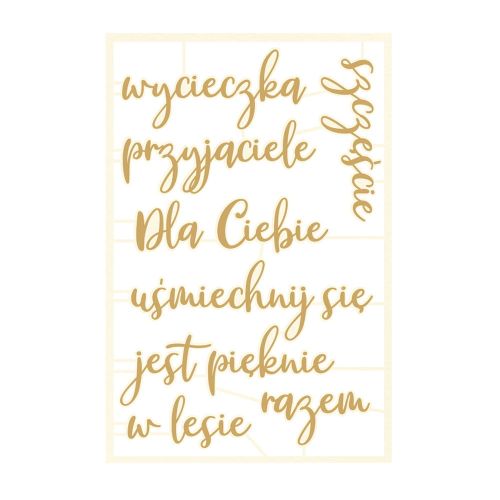 wycieczka
szczęście
przyjaciele
Dla Ciebie
uśmiechnij się
jest pięknie
razem
w lesie